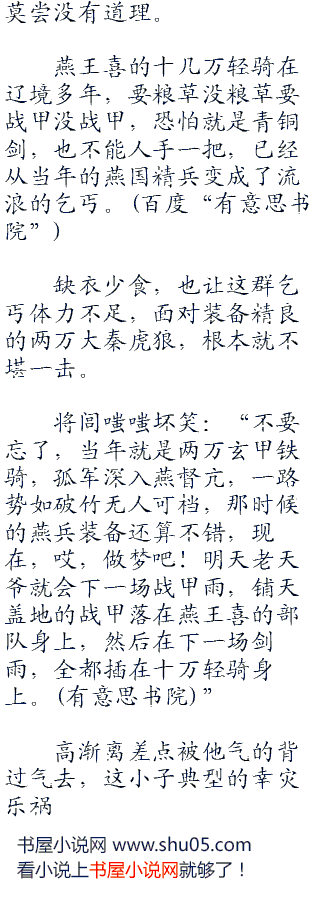 莫尝没有道理。
燕王喜的十几万轻骑在
辽境多年，要粮草没粮草要
战甲没战甲，恐怕就是青铜
剑，也不能人手一把，已经
从当年的燕国精兵变成了流
浪的乞丐。(百度“有意思书
院”)
缺衣少食，也让这群乞
丐体力不足，面对装备精良
的两万大秦虎狼，根本就不
堪一击。
将闾嗤嗤坏笑：“不要
忘了，当年就是两万玄甲铁
骑，孤军深入燕督亢，一路
势如破竹无人可档，那时候
的燕兵装备还算不错，现
在，哎，做梦吧！明天老天
爷就会下一场战甲雨，铺天
盖地的战甲落在燕王喜的部
队身上，然后在下一场剑
雨，全都插在十万轻骑身
上。(有意思书院)”
高渐离差点被他气的背
过气去，这小子典型的幸灾
乐祸
书屋小说网 www.shu05.com
看小说上书屋小说网就够了！